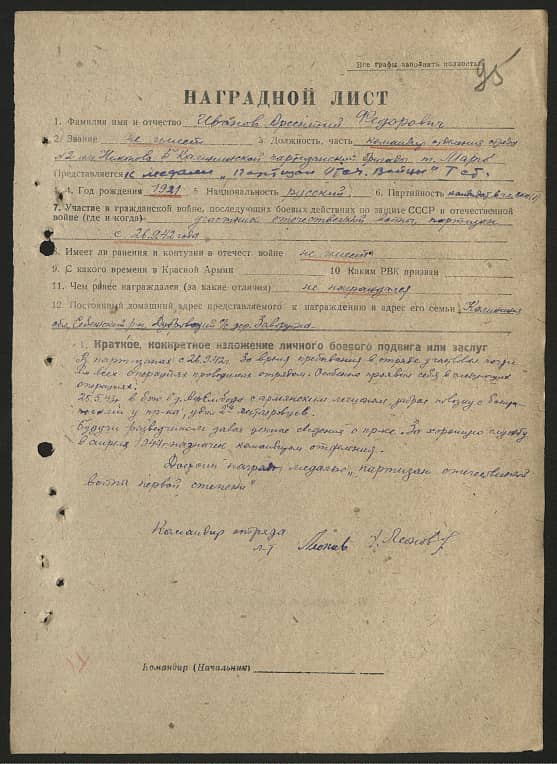 Все графы заполнять полностью
95
НАГРАДНОЙ ЛИСТ
1. Фамилия имя и отчество Иванов Арсентий Федорович
2. Звание не имеет 3. Должность, часть командир отделения отряда
Калининской партизанской бригады т. Марго
Представляется к медали „Партизан Отеч. Войны" I ст.
4. Год рождения 1921 5 Национальность русский 6. Партийность
7. Участие в гражданской войне, последующих боевых действиях по защите СССР и отечественной
войне (где и когда) участник отечественной войны, партизан
с 26.9.42 года
8. Имеет ли ранения и контузии в отечест. войне не имеет
9. С какого времени в Красной Армии 10 Каким РВК призван
11. Чем ранее награждался (за какие отличия) не награждался
12. Постоянный домашний адрес представляемого к награждению и адрес его семьи Калининск
обл. Себежский р-н дер.
1. Краткое, конкретное изложение личного боевого подвига или заслуг
В партизанах с 26.9.42г. За время пребывания в отряде участвовал почти
во всех операциях проводимых отрядом. Особенно проявил себя в следующих
операциях:
25.5.43г. в бою с армянским легионом, забрал повозку с боепри-
пасами у пр-ка, убил 2х
Будучи разведчиком давал ценные сведения о пр-ке. За хорошую службу
в апреле 1944г назначен командиром отделения.
Достоин награды медалью „партизан отечественной
войны первой степени"
Командир отряда
л-т Леонов
Командир (Начальник)